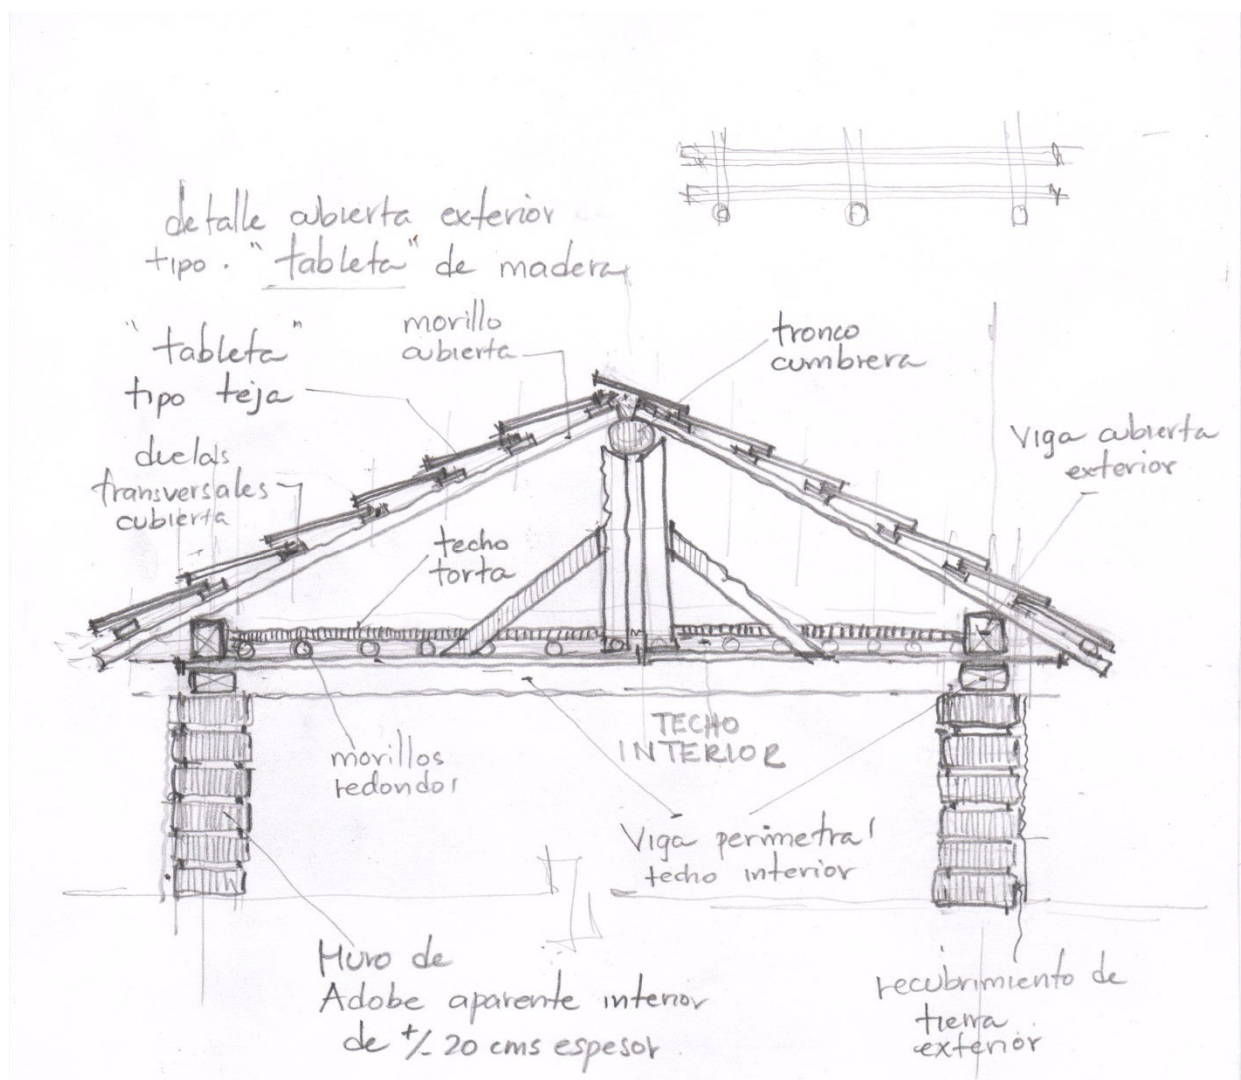 detalle cubierta exterior
tipo. "tableta" de madera
"tableta"
tipo teja
morillo
cubierta
tronco
cumbrera
Viga cubierta
exterior
duelas
transversales
cubierta
techo
torta
morillos
redondos
TECHO
INTERIOR
Viga perimetral
techo interior
Muro de
Adobe aparente interior
de +/- 20 cms espesor
recubrimiento de
tierra
exterior